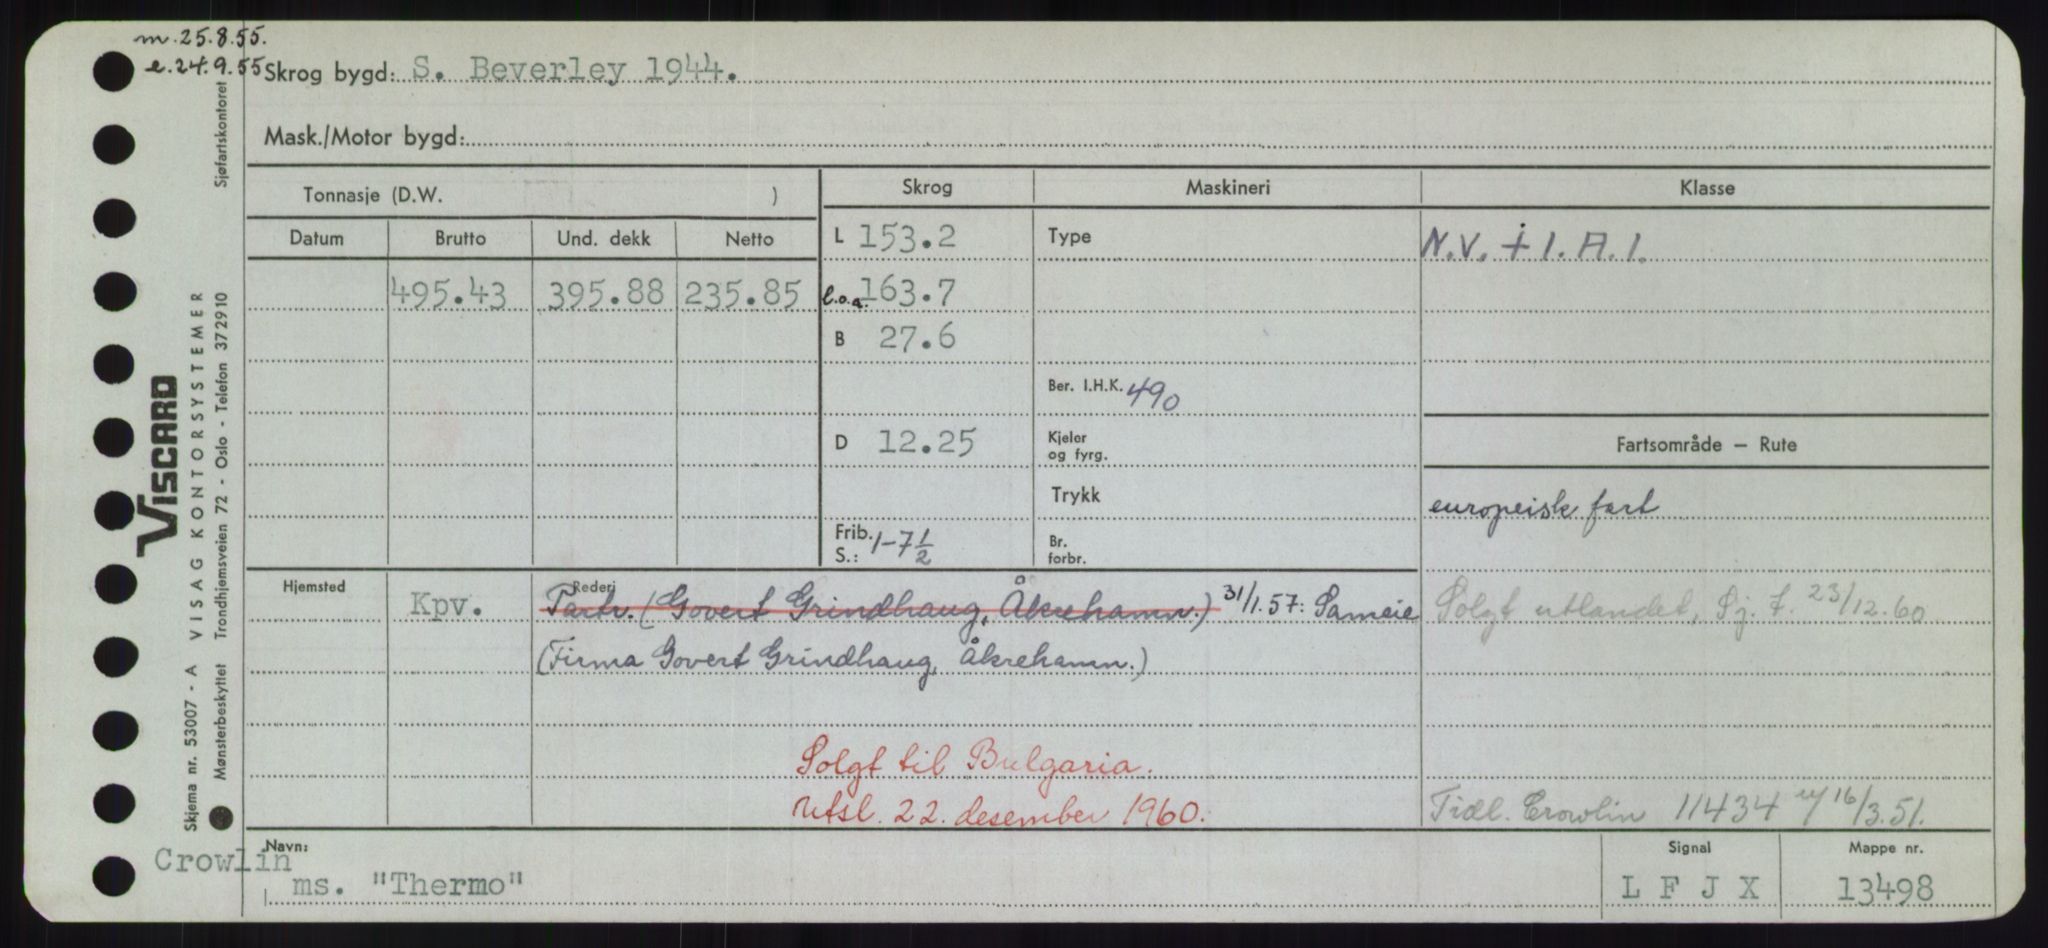 m. 25.8.55.
e. 24.9.55
Skrog bygd: S. Beverley 1944.
Mask./Motor bygd:
Tonnasje (D.W. )
Skrog
Maskineri
Klasse
Datum
Brutto
Und. dekk
Netto
495.43
395.88
235.85
L 153.2
l.o.a. 163.7
B 27.6
D 12.25
Frib.
S.: 1-7 1/2
Type
Ber. I.H.K. 490
Kjeler
og fyrg.
Trykk
Br.
forbr.
N.V. + 1. A. 1.
Fartsområde – Rute
europeisk fart
Solgt utlandet, Sj. f. 23/12.60
Tidl. Crowlin 11434 16/3.51.
Hjemsted
Kpv.
Rederi
Partr. (Govert Grindhaug, Åkrehamn.) 31/1.57: Sameie
(Firma Govert Grindhaug, Åkrehamn.)
Solgt til Bulgaria.
Utsl. 22. desember 1960.
Navn:
Crowlin
ms. "Thermo"
Signal
L F J X
Mappe nr.
13498
Skjema nr. 53007 - A VISAG KONTORSYSTEMER
Mønsterbeskyttet Trondhjemsveien 72 - Oslo - Telefon 372910
Sjøfartskontoret
VISCARD